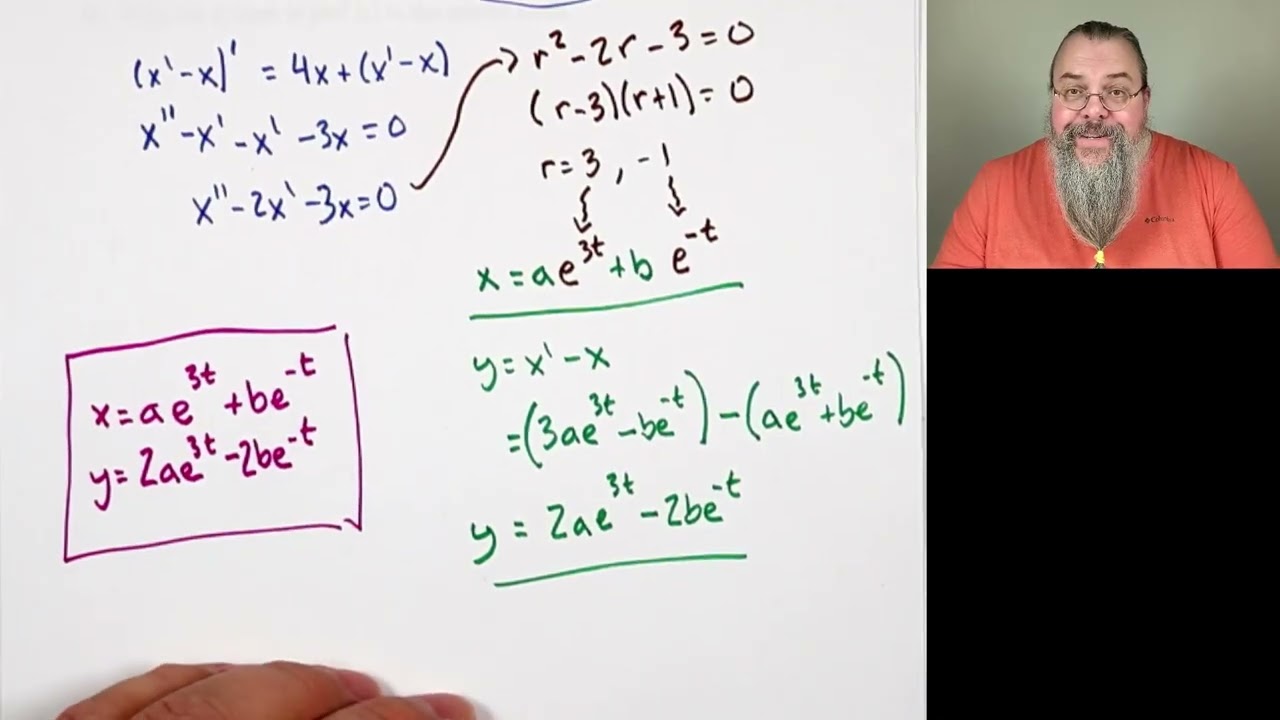 (x' - x)' = 4x + (x' - x)
x'' - x' - x' - 3x = 0
x'' - 2x' - 3x = 0
r² - 2r - 3 = 0
(r - 3)(r + 1) = 0
r = 3 , -1
x = ae^{3t} + b e^{-t}
y = x' - x
= (3ae^{3t} - be^{-t}) - (ae^{3t} + be^{-t})
y = 2ae^{3t} - 2be^{-t}
x = ae^{3t} + be^{-t}
y = 2ae^{3t} - 2be^{-t}
Columbia